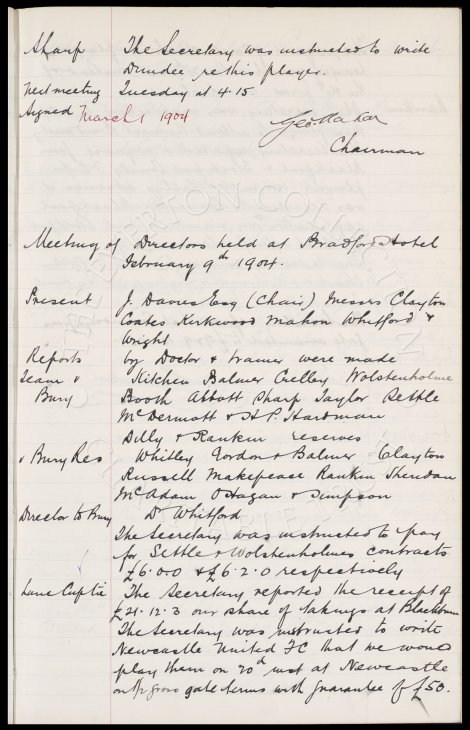 Sharp The Secretary was instructed to write
Dundee re this player.
Next meeting Tuesday at 4.15
Signed March 1 1904
Geo. Mahon
Chairman
Meeting of Directors held at Bradford Hotel
February 9th 1904.
Present J. Davies Esq (Chair) Messrs Clayton
Coates Kirkwood Mahon Whitford &
Wright
Reports by Doctor & Trainer were made
Team v Kitchen Balmer Crelley Wolstenholme
Bury Booth Abbott Sharp Taylor Settle
McDermott & H P. Hardman
Dilly & Rankin reserves
v Bury Res Whitley Gordon & Balmer Clayton
Russell Makepeace Rankin Sheridan
McAdam O'Hagan & Simpson
Director to Bury Dr Whitford
The Secretary was instructed to pay
for Settle & Wolstenholmes contracts
£6.0.0 & £6.2.0 respectively
Lanc Cup tie The Secretary reported the receipt of
£21.12.3 our share of takings at Blackburn
The Secretary was instructed to write
Newcastle United FC that we would
play them on 20th inst at Newcastle
on gross gate terms with guarantee of £50.
THE EVERTON COLLECTION